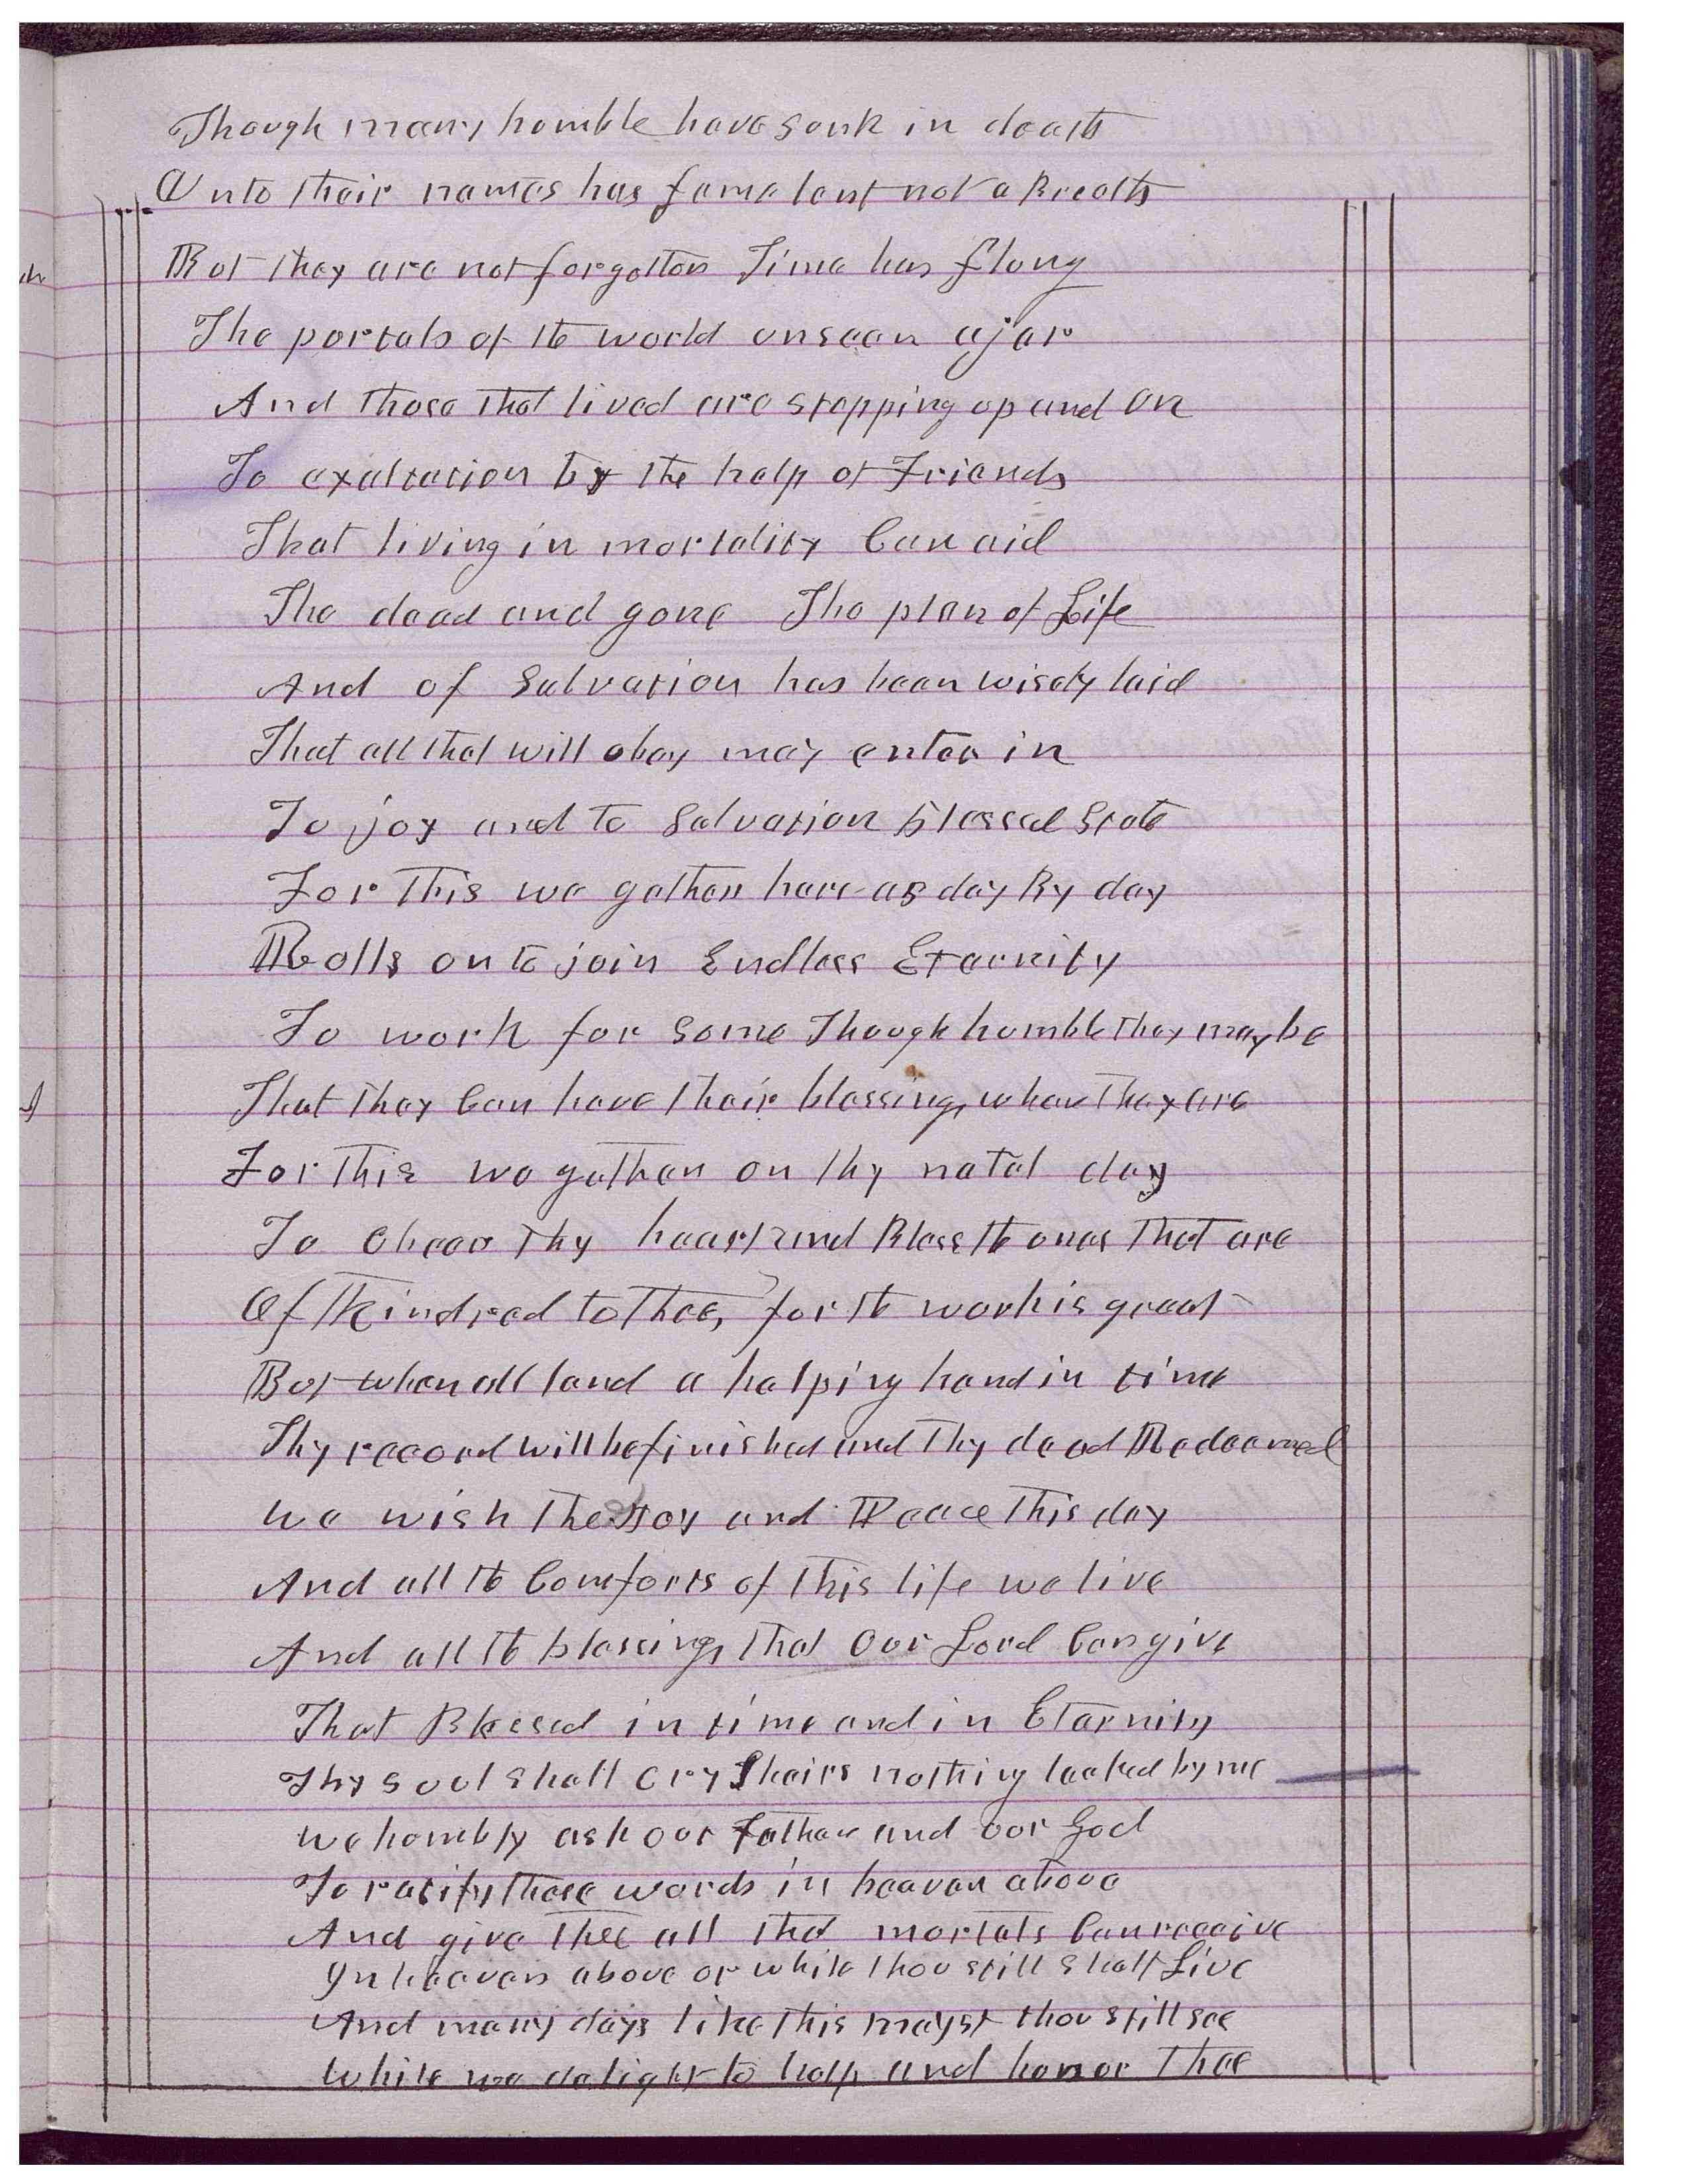 Though many humble have sunk in death
Unto their names has fame lent not a Breath
But they are not forgotten Time has flung
The portals of the world unseen ajar
And those that lived are stepping up and on
To exaltation by the help of Friends
That living in mortality Can aid
The dead and gone The plan of Life
And of Salvation has been wisely laid
That all that will obey may enter in
To joy and to Salvation blessed State
For this we gather here as day By day
Rolls on to join Endless Eternity
To work for some Though humble they may be
That they Can have their blessings when they are
For this we gather on thy natal day
To Cheer Thy heart and Bless the ones that are
Of Kindred to Thee, for the work is great
But when all lend a helping hand in time
Thy record will be finished and Thy dead Redeemed
We wish Thee Joy and Peace This day
And all the Comforts of this life we live
And all the blessings that Our Lord Can give
That Blessed in time and in Eternity
Thy soul shall Cry theirs nothing lacked by me
We humbly ask our Father and our God
To ratify these words in heaven above
And give Thee all that mortals Can receive
In heaven above or while thou still shalt Live
And many days like this mayst thou still see
While we delight to help and honor Thee